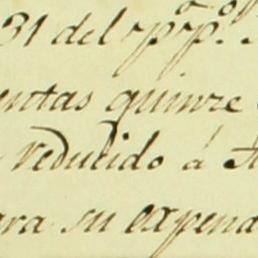 31 del
entas quinze
reducido á
ara su expend